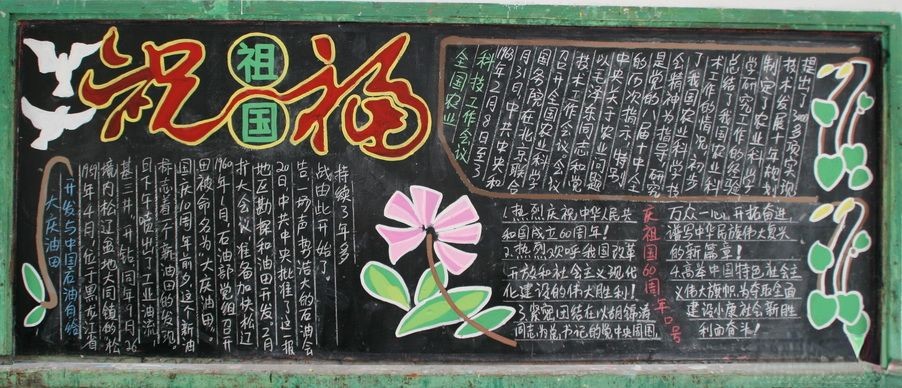 祝福
祖国
大庆油田
开发与中国石油有缘
1959年4月,位于黑龙江省
境内松辽盆地大同镇的松
基三井,开钻,同年9月26
日下午喷出了工业油流,
标志着一个新油田的发现。
国庆10周年前夕,这个新油
田被命名为“大庆油田”。
1960年1月,石油部党组召开
扩大会议,准备加快松辽
地区勘探和油田开发。2月
20日,中共中央批准了这一报
告,一场声势浩大的石油会
战由此开始了。
持续了3年多
全国农业
科技工作会议
1963年2月8日至3
月31日,中共中央和
国务院在北京联合
召开全国农业科学
技术工作会议,会议
以毛泽东同志和党
中央关于农业问题
的历次指示,特别
是党的八届十中全
会精神为指导,研究
了我国农业科学技
术工作的情况,初步
总结了
学研究工作的经验
制定了农业科学
技术发展十年规划
提出了3000多项实现
庆祖国60周年口号
1.热烈庆祝中华人民共
和国成立60周年!
2.热烈欢呼我国改革
开放和社会主义现代
化建设的伟大胜利!
3.紧密团结在以胡锦涛
同志为总书记的党中央周围,
万众一心,开拓奋进
谱写中华民族伟大复兴
的新篇章!
4.高举中国特色社会主
义伟大旗帜,为夺取全面
建设小康社会新胜
利而奋斗!